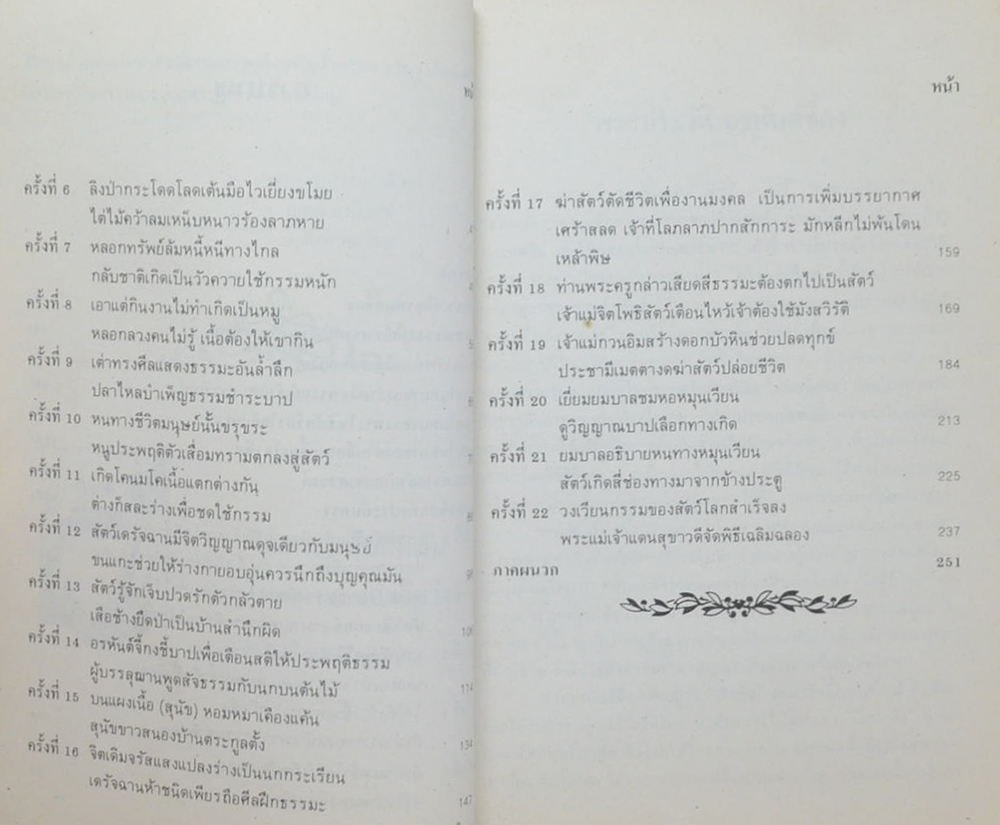 ครั้งที่ 6 ลิงป่ากระโดดโลดเต้นมือไวเยี่ยงขโมย
ไต่ไม้คว้าลมเหน็บหนาวร้องลาภหาย
ครั้งที่ 7 หลอกทรัพย์ล้มหนี้หนีทางไกล
กลับชาติเกิดเป็นวัวควายใช้กรรมหนัก
ครั้งที่ 8 เอาแต่กินงานไม่ทำเกิดเป็นหมู
หลอกลวงคนไม่รู้ เนื้อต้องให้เขากิน
ครั้งที่ 9 เต่าทรงศีลแสดงธรรมะอันล้ำลึก
ปลาไหลบำเพ็ญธรรมชำระบาป
ครั้งที่ 10 หนทางชีวิตมนุษย์นั้นขรุขระ
หนูประพฤติตัวเสื่อมทรามตกลงสู่สัตว์
ครั้งที่ 11 เกิดโคนมโคเนื้อแตกต่างกัน
ต่างก็สละร่างเพื่อชดใช้กรรม
ครั้งที่ 12 สัตว์เดรัจฉานมีจิตวิญญาณดุจเดียวกับมนุษย์
ขนแกะช่วยให้ร่างกายอบอุ่นควรนึกถึงบุญคุณมัน
ครั้งที่ 13 สัตว์รู้จักเจ็บปวดรักตัวกลัวตาย
เสือช้างยึดป่าเป็นบ้านสำนึกผิด 106
ครั้งที่ 14 อรหันต์จี้กงชี้บาปเพื่อเตือนสติให้ประพฤติธรรม
ผู้บรรลุฌานพูดสัจธรรมกับนกบนต้นไม้ 114
ครั้งที่ 15 บนแผงเนื้อ (สุนัข) หอมหมาเคืองแค้น
สุนัขขาวสนองบ้านตระกูลตั้ง 134
ครั้งที่ 16 จิตเดิมจรัสแสงแปลงร่างเป็นนกกระเรียน
เดรัจฉานห้าชนิดเพียรถือศีลฝึกธรรมะ 147
หน้า
ครั้งที่ 17 ฆ่าสัตว์ตัดชีวิตเพื่องานมงคล เป็นการเพิ่มบรรยากาศ
เศร้าสลด เจ้าที่โลภลาภปากสักการะ มักหลีกไม่พ้นโดน
เหล้าพิษ 159
ครั้งที่ 18 ท่านพระครูกล่าวเสียดสีธรรมะต้องตกไปเป็นสัตว์
เจ้าแม่จิตโพธิสัตว์เตือนไหว้เจ้าต้องใช้มังสวิรัติ 169
ครั้งที่ 19 เจ้าแม่กวนอิมสร้างดอกบัวหินช่วยปลดทุกข์
ประชามีเมตตางดฆ่าสัตว์ปล่อยชีวิต 184
ครั้งที่ 20 เยี่ยมยมบาลชมหอหมุนเวียน
ดูวิญญาณบาปเลือกทางเกิด 213
ครั้งที่ 21 ยมบาลอธิบายหนทางหมุนเวียน
สัตว์เกิดสี่ช่องทางมาจากข้างประตู 225
ครั้งที่ 22 วงเวียนกรรมของสัตว์โลกสำเร็จลง
พระแม่เจ้าแดนสุขาวดีจัดพิธีเฉลิมฉลอง 237
ภาคผนวก 251